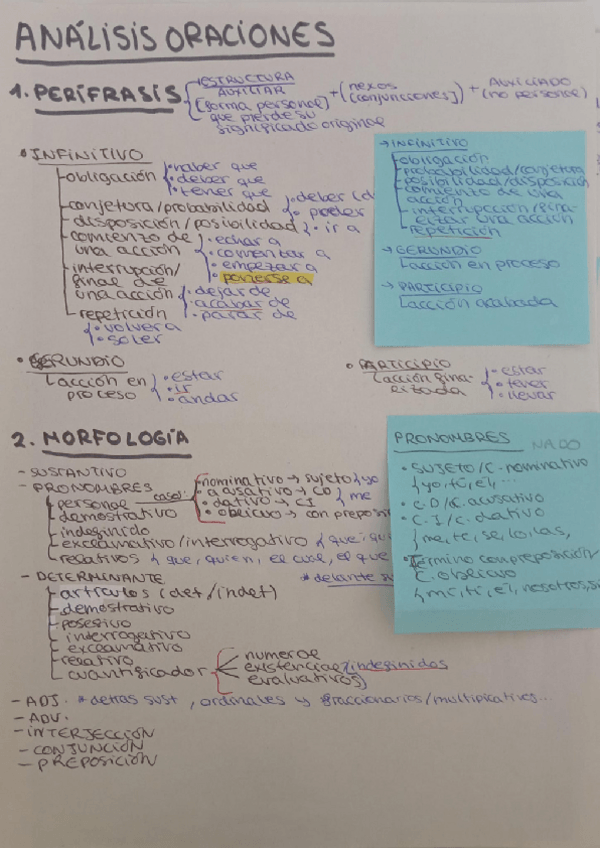 ANÁLISIS ORACIONES
1. PERÍFRASIS
ESTRUCTURA
AUXILIAR + (nexos + AUXILIADO
[forma personal] (conjunciones]) (no personal)
que pierde su
significado original
• INFINITIVO
obligación • haber que
• deber que
• tener que
conjetura/probabilidad • deber (d
disposición/posibilidad • poder
• ir a
comienzo de
una acción • echar a
• comentar a
• empezar a
• ponerse a
interrupción/
final de
una acción • dejar de
• acabar de
• parar de
repetición
• volver a
• soler
→ INFINITIVO
obligación
probabilidad/conjetura
posibilidad/disposición
comienzo de una
acción
interrupción/fina-
lizar una acción
repetición
→ GERUNDIO
acción en proceso
→ PARTICIPIO
acción acabada
• GERUNDIO
acción en
proceso • estar
• ir
• andar
• PARTICIPIO
acción fina-
lizada • estar
• tener
• llevar
2. MORFOLOGÍA
- SUSTANTIVO
- PRONOMBRES
personal caso: nominativo → sujeto yo
acusativo → CD me
• dativo → CI
• oblicuo → con preposi
demostrativo
indefinido
exclamativo/interrogativo que, qui
relativos que, quien, el cual, el que
- DETERMINANTE * delante su
artículos (det/indet)
demostrativo
posesivo
interrogativo
exclamativo
relativo
cuantificador numeral
existencial/indefinidos
evaluativos
- ADJ. * detras sust, ordinales y fraccionarios/multipicativos...
- ADV.
- INTERJECCIÓN
- CONJUNCIÓN
- PREPOSICIÓN
PRONOMBRES NADO
• SUJETO/C. nominativo
yo, tú, él, ...
• C.D/C. acusativo
• C.I/c. dativo
me, te, se, lo, las,
• Término con preposición
C. oblicuo
mí, ti, él, nosotros, s